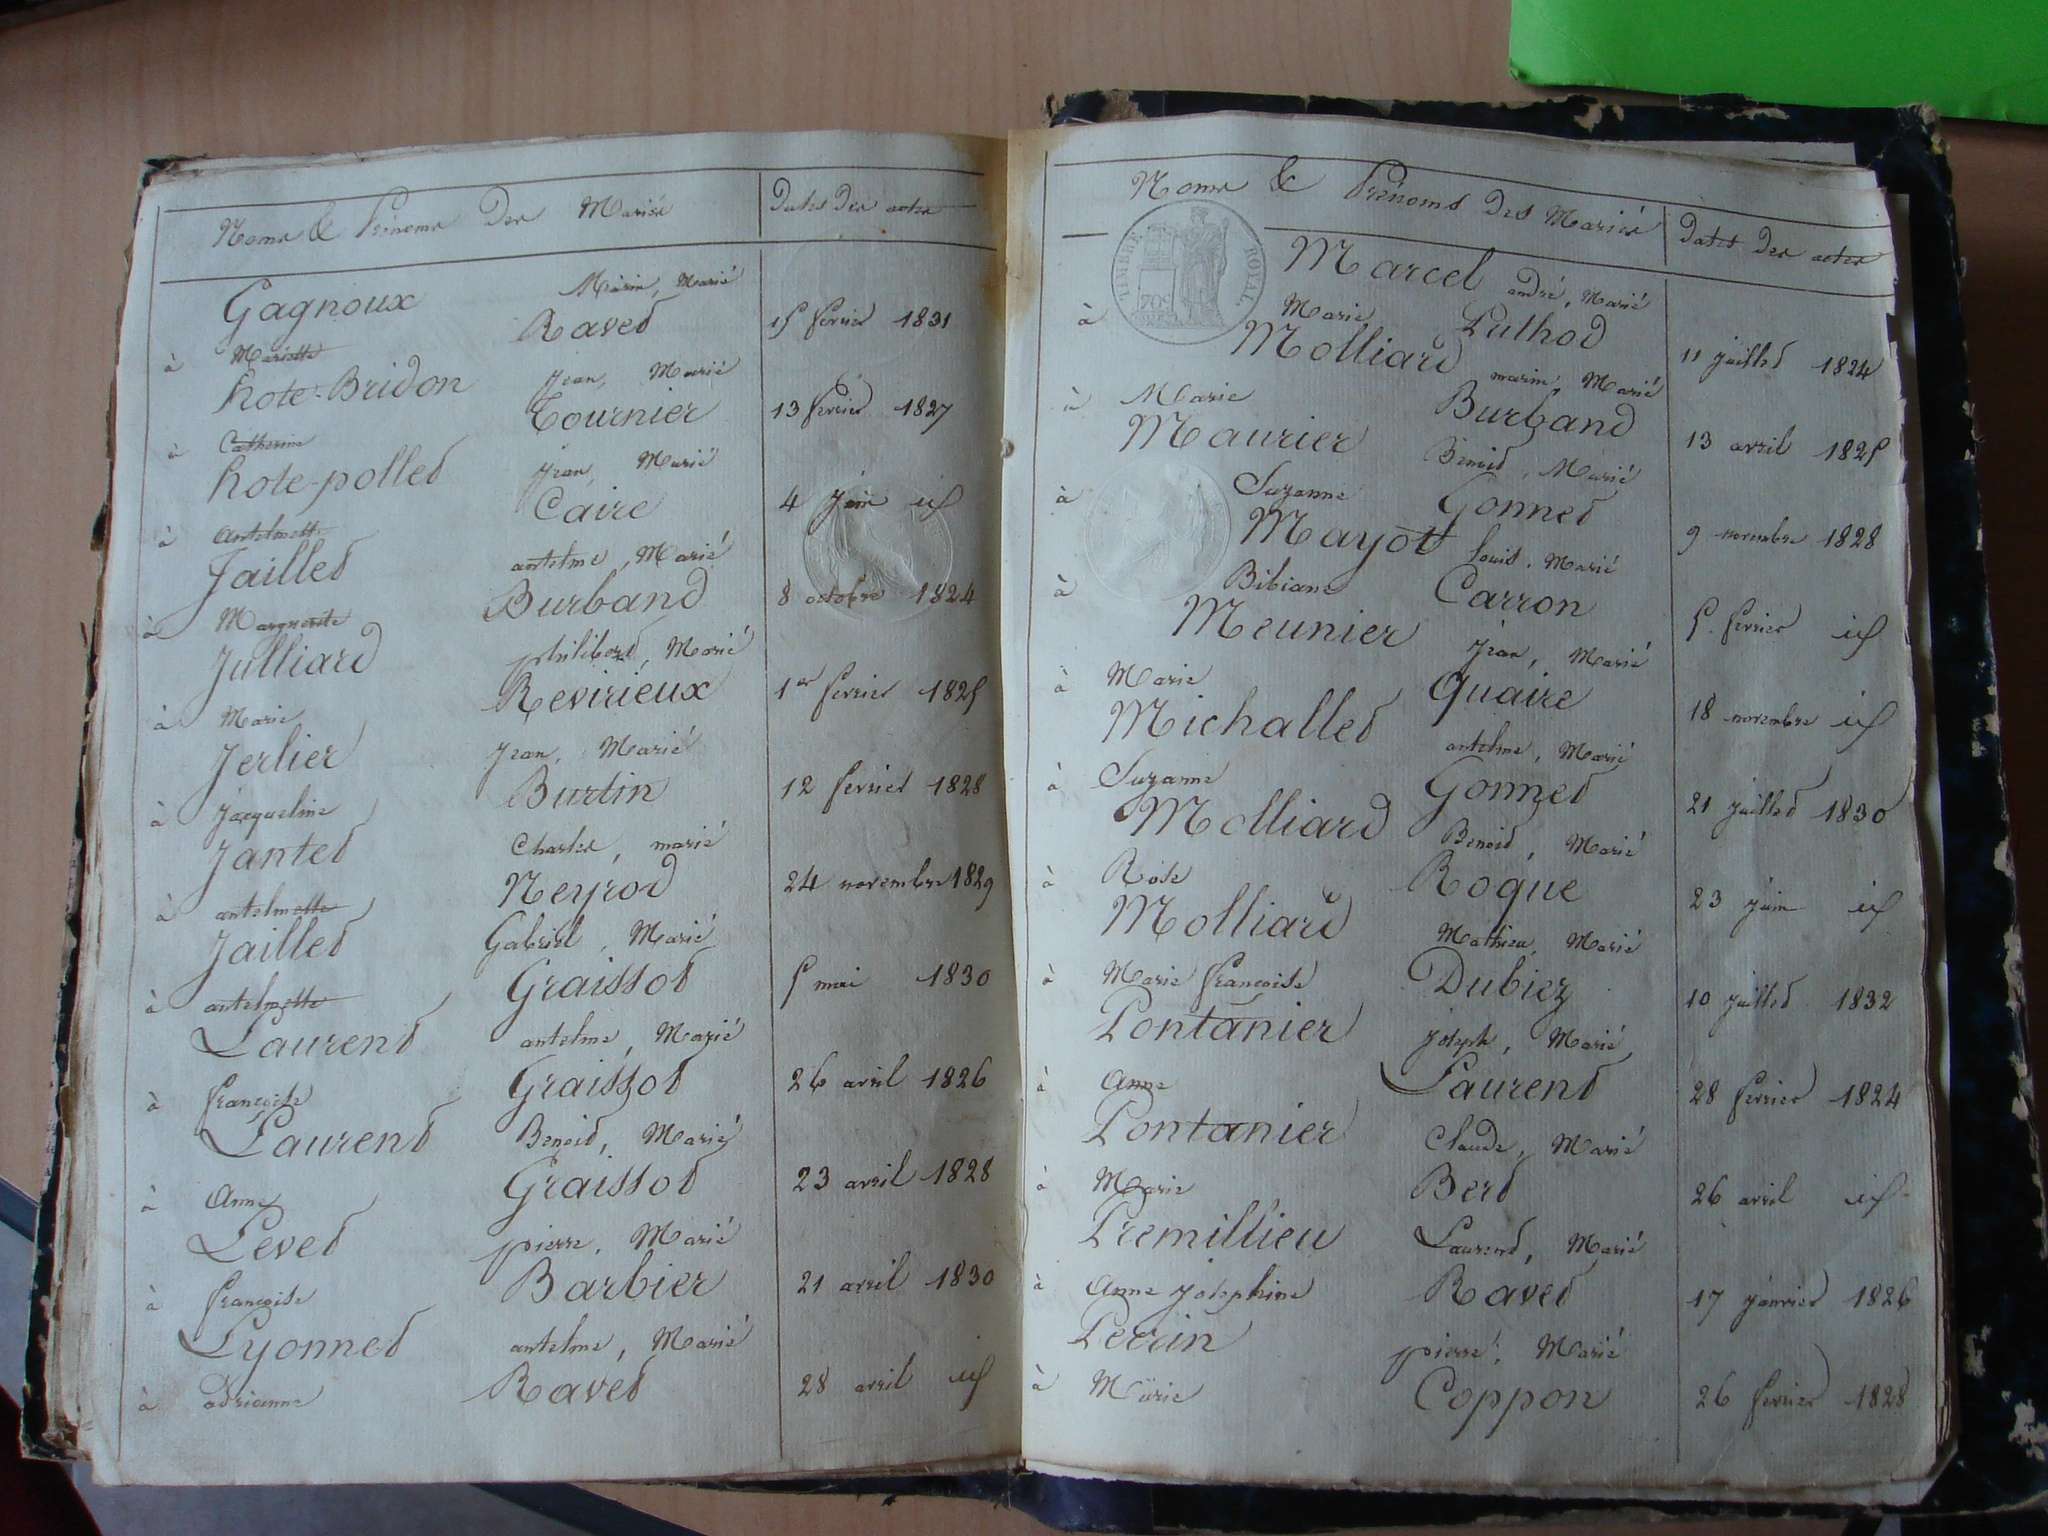 Noms & Prénoms Des Mariés Dates Des actes
Gagnoux Marin, Marié
à Mariette Raved 15 fevrier 1831
hote-Bridon Jean, Marié
à Catherine Tournier 13 fevrier 1827
hote-polled Jean, Marié
à antelmette Caire 4 Juin id
Jailled antelme, Marié
à Marguerite Burband 8 octobre 1824
Julliard philiberd, Marié
à Marie Revirieux 1er fevrier 1825
Jerlier Jean, Marié
à Jacqueline Burtin 12 fevrier 1828
Janted Charles, marié
à antelmette Neyrod 24 novembre 1829
Jailled Gabriel, Marié
à antelmette Graissod 5 mai 1830
Laurend antelme, Marié
à françoise Graissod 26 avril 1826
Laurend Benoid, Marié
à Anne Graissod 23 avril 1828
Leved pierre, Marié
à françoise Barbier 21 avril 1830
Lyonned antelme, Marié
à adrianne Raved 28 avril id
Noms & Prénoms Des Mariés Dates Des actes
TIMBRE ROYAL
70c
Marcel andré, Marié
à Marie Luthod 11 juilled 1824
Molliard marin, Marié
à Marie Burband 13 avril 1825
Maurier Benoid, Marié
à Suzanne Gonned 9 novembre 1828
Mayott Louis, Marié
à Bibiane Carron 5 fevrier id
Meunier Jean, Marié
à Marie Quaire 18 novembre id
Michalled antelme, Marié
à Suzanne Gonned 21 juilled 1830
Molliard Benoid, Marié
à Rose Roque 23 juin id
Molliard Mathieu, Marié
à Marie françoise Dubiez 10 juilled 1832
Pontanier joseph, Marié
à Anne Laurend 28 fevrier 1824
Pontanier Claude, Marié
à Marie Berd 26 avril id
Premillieu Laurend, Marié
à Anne josephine Raved 17 janvier 1826
Perrin pierre, Marié
à Marie Coppon 26 fevrier 1828